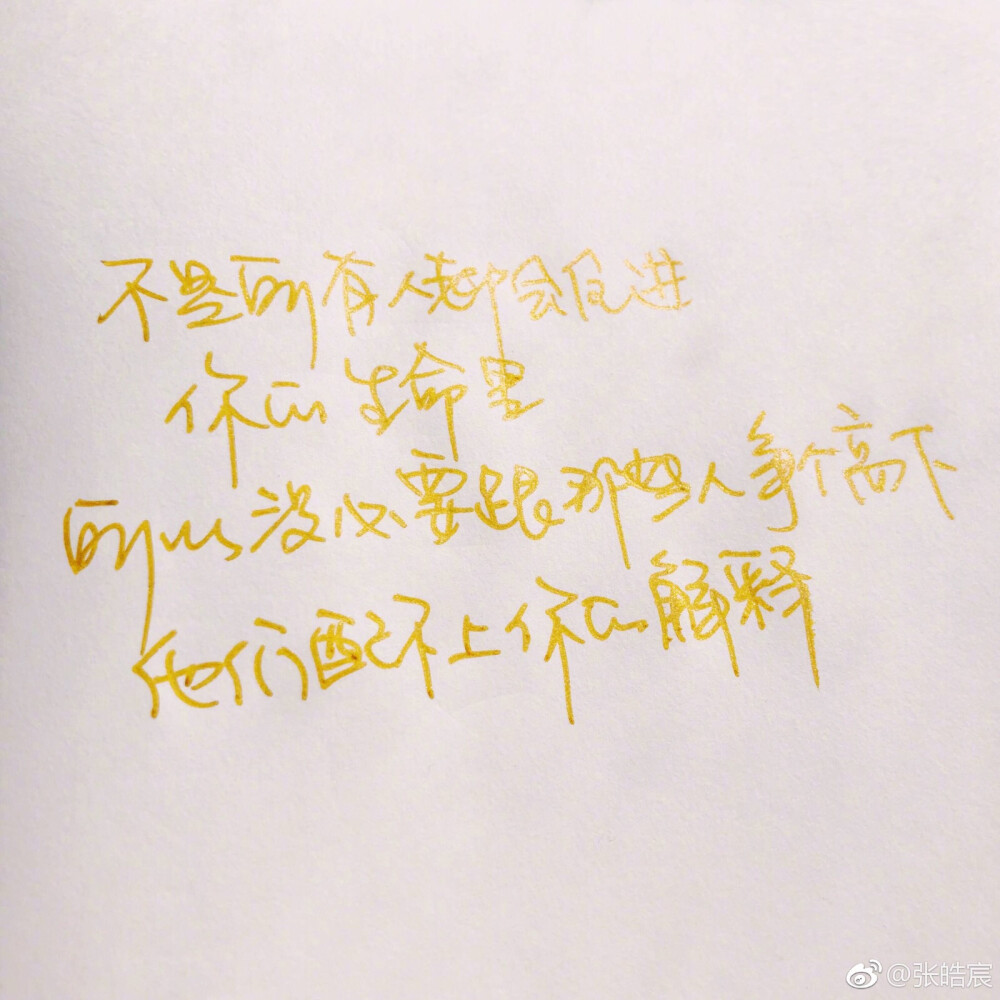 不是所有人都会住进
你的生命里
所以没必要跟那些人争个高下
他们配不上你的解释
@张皓宸